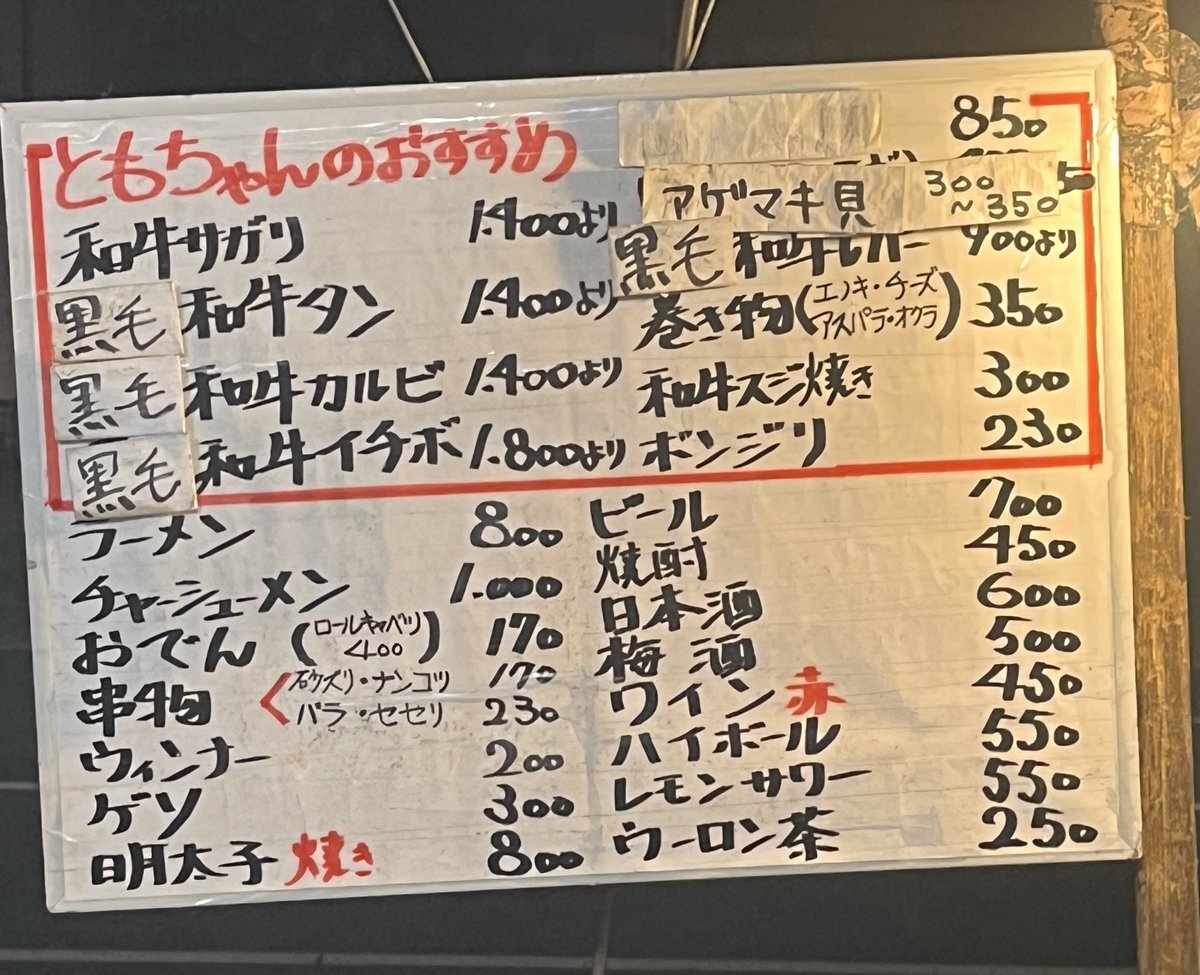 ともちゃんのおすすめ
和牛サガリ 1.400より
黒毛 和牛タン 1.400より
黒毛 和牛カルビ 1.400より
黒毛 和牛イチボ 1.800より
850
アゲマキ貝 300~350
黒毛 和牛レバー 900より
巻き物(エノキ・チーズ アスパラ・オクラ) 350
和牛スジ焼き 300
ボンジリ 230
ラーメン 800
チャーシューメン 1.000
おでん (ロールキャベツ 400) 170
串物 < 砂ズリ・ナンコツ 170
バラ・セセリ 230
ウィンナー 200
ゲソ 300
明太子 焼き 800
ビール 700
焼酎 450
日本酒 600
梅酒 500
ワイン 赤 450
ハイボール 550
レモンサワー 550
ウーロン茶 250